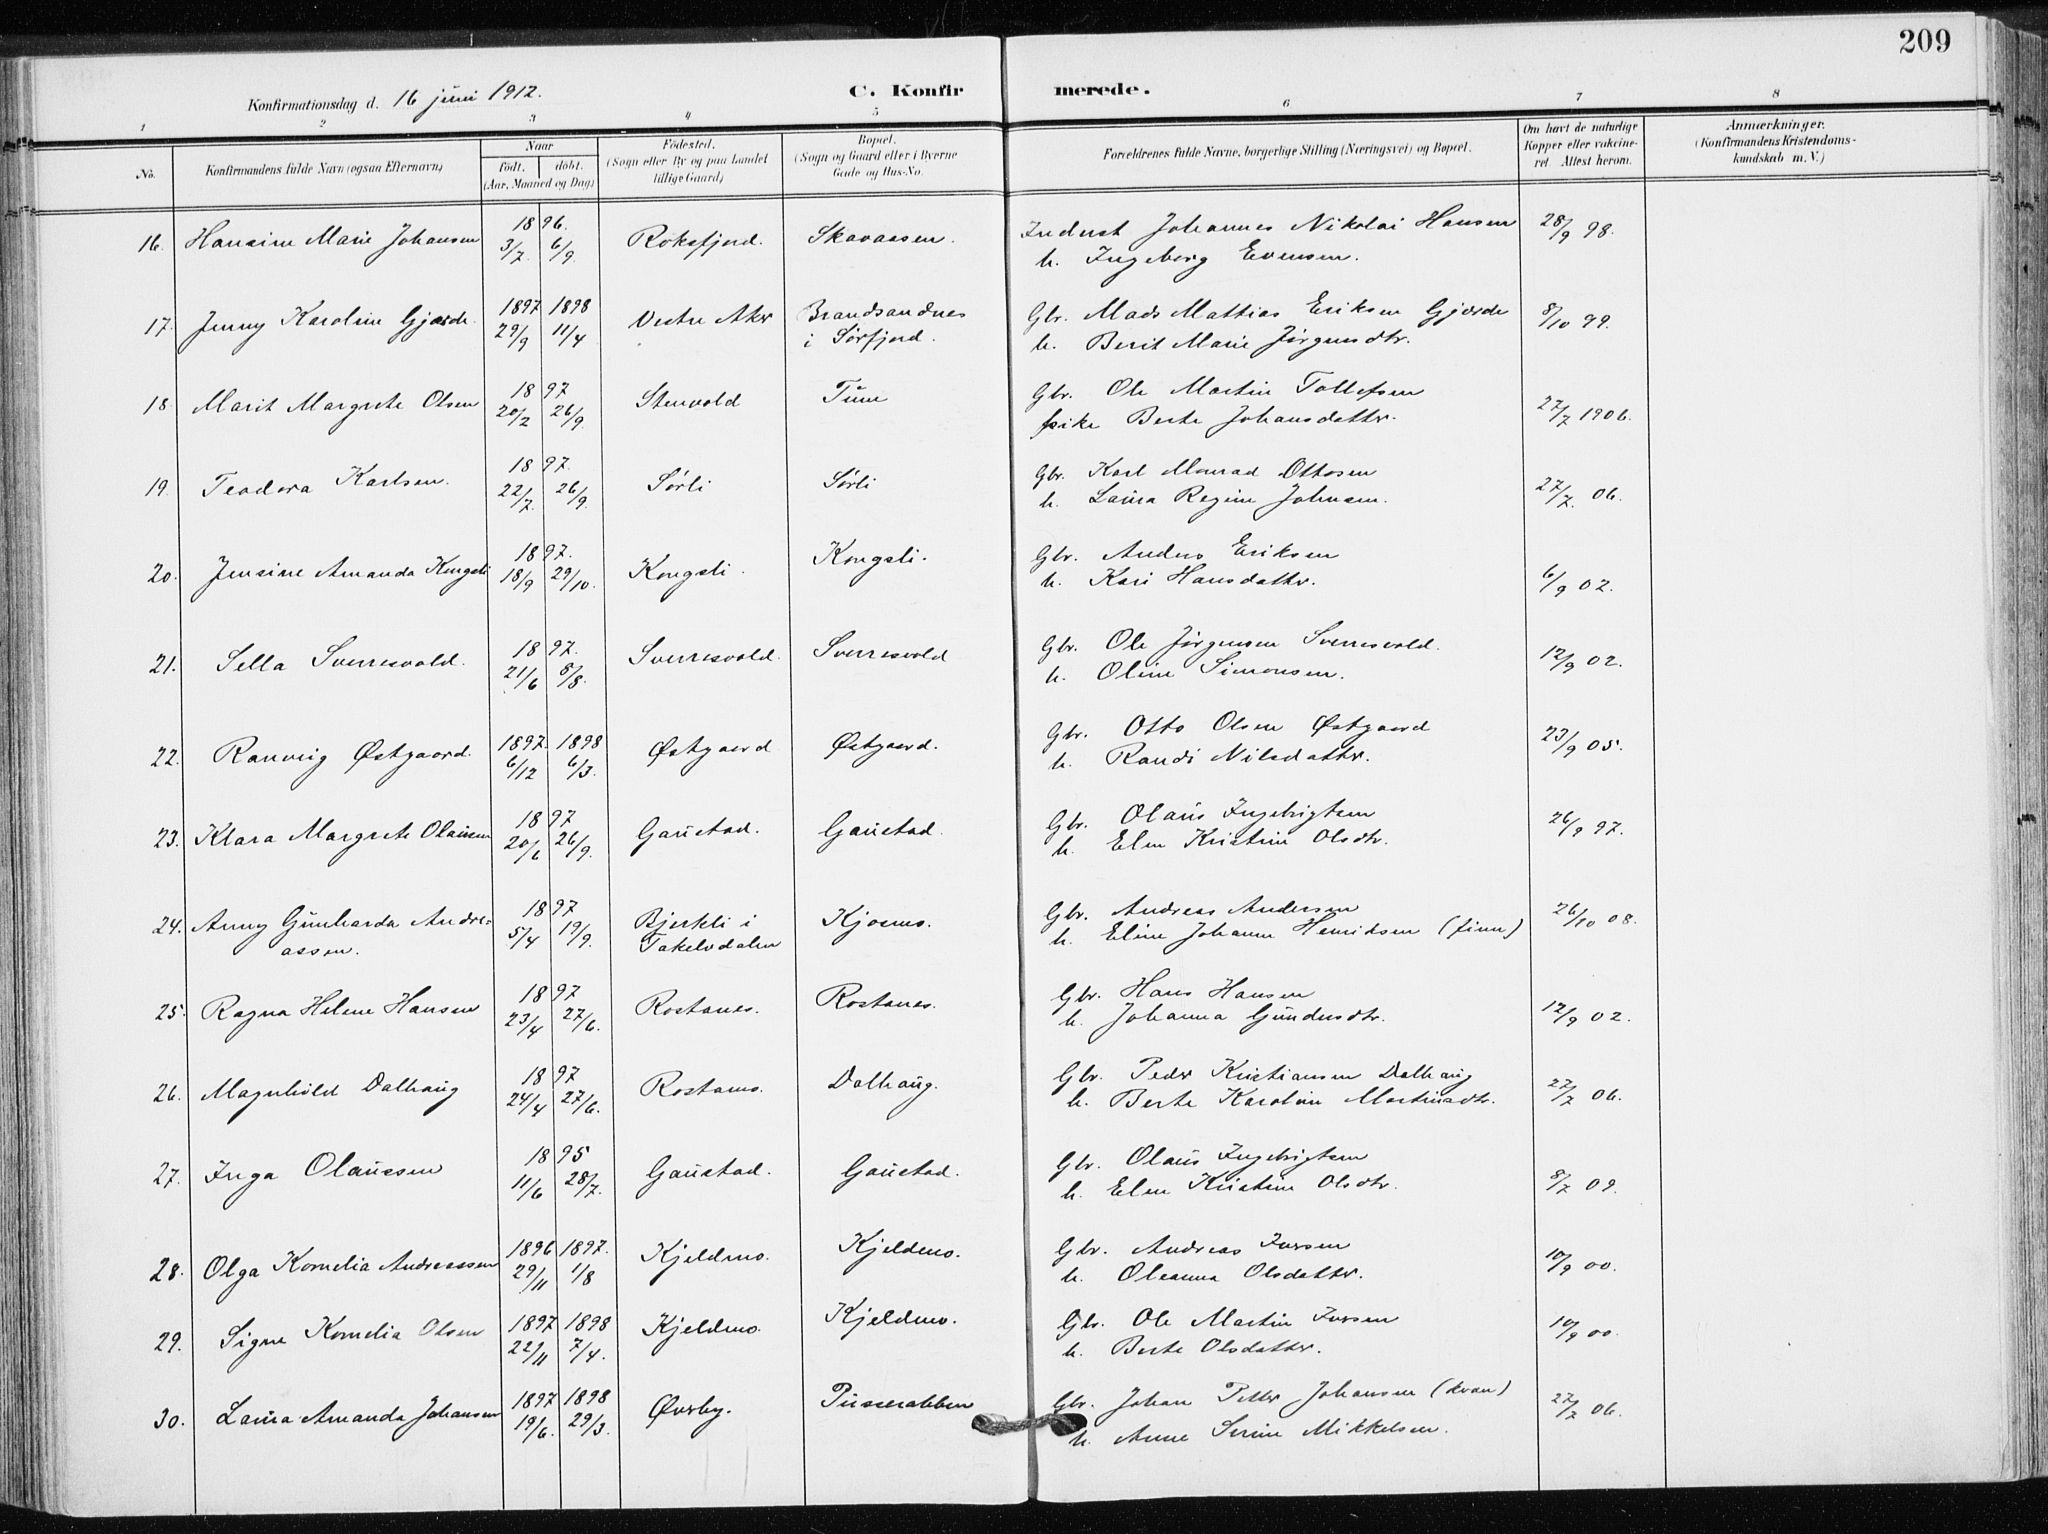 209
Konfirmationsdag d. 16 juni 1912.
C. Konfirmerede.
1 2 3 4 5 6 7 8
No.
Konfirmandens fulde Navn (ogsaa Efternavn)
Naar
født. døbt.
(Aar, Maaned og Dag)
Fødested.
(Sogn eller By og paa Landet
tillige Gaard)
Bopæl.
(Sogn og Gaard eller i Byerne
Gade og Hus-No.
Forældrenes fulde Navne, borgerlige Stilling (Næringsvei) og Bopæl.
Om havt de naturlige
Kopper eller vakcine-
ret. Attest herom.
Anmærkninger.
(Konfirmandens Kristendoms-
kundskab m. V.)
16. Hansine Marie Johansen 1896. 3/7 6/9. Roksfjord. Skavaasen. Inderst Johannes Nikolai Hansen 28/9 98.
h. Ingeborg Evensen.
17. Jenny Karoline Gjærde. 1897 29/9 1898 11/4 Vestre Aker Brandsandnes
i Sørfjord.
Gbr. Mads Mattias Eriksen Gjærde 8/10 99.
h. Berit Marie Jørgensdtr.
18. Marit Margrete Olsen 1897 20/2 26/9. Stenvold Tune Gbr. Ole Martin Tollefsen 27/7 1906.
pike Berte Johansdatter.
19. Teodora Karlsen. 1897. 22/7. 26/9. Sørli Sørli Gbr. Karl Monrad Ottosen 27/7. 06.
h. Laura Regine Johnsen.
20. Jensine Amanda Kongsli 1897. 18/9 29/10. Kongsli. Kongsli. Gbr. Anders Eriksen 6/9 02.
h. Kari Hansdatter.
21. Sella Sverresvold. 1897. 21/6 8/8. Sverresvold. Sverresvold Gbr. Ole Jørgensen Sverresvold. 12/9 02.
h. Oline Simonsen.
22. Ranveig Østgaard. 1897. 6/12 1898 6/3. Østgaard Østgaard. Gbr. Otto Olsen Østgaard 23/9 05.
h. Randi Nilsdatter.
23. Klara Margrete Olaussen 1897 20/6 26/9. Gaustad. Gaustad. Gbr. Olaus Ingebrigtsen 26/9 97.
h. Elen Kristine Olsdtr.
24. Anny Gunharda Andre-
assen.
1897 5/4 19/9. Bjerkli i
Takelvdalen
Kjosmo. Gbr. Andreas Andersen 26/10 08.
h. Eline Johanne Henriksen (finn)
25. Ragna Helene Hansen 1897 23/4 27/6. Rostanes. Rostanes. Gbr. Hans Hansen 12/9 02.
h. Johanna Gundersdtr.
26. Magnhild Dalhaug 1897 24/4 27/6. Rostamo. Dalhaug. Gbr. Peder Kristiansen Dalhaug 27/7 06.
h. Berte Karoline Martinsdtr.
27. Inga Olaussen 1895 11/6 28/7. Gaustad. Gaustad. Gbr. Olaus Ingebrigtsen 8/7 09.
h. Elen Kristine Olsdtr.
28. Olga Kornelia Andreassen 1896 29/11 1897. 1/8 Kjeldmo. Kjeldmo. Gbr. Andreas Iversen 10/9 00.
h. Oleanna Olsdatter.
29. Signe Kornelia Olsen 1897 22/11 1898 7/4. Kjeldmo. Kjeldmo. Gbr. Ole Martin Iversen 10/9 00.
h. Berte Olsdatter.
30. Laura Amanda Johansen 1897 19/6. 1898 29/3. Øverby. Gbr. Johan Petter Johansen (kvæn) 27/7 06.
h. Anne Serine Mikkelsen.